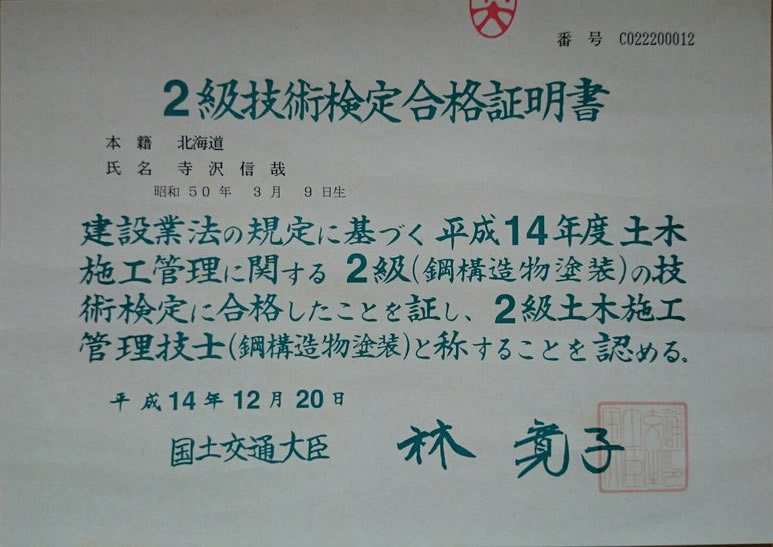 番号 C022200012
2級技術検定合格証明書
本籍 北海道
氏名 寺沢信哉
昭和50年 3月 9日生
建設業法の規定に基づく平成14年度土木
施工管理に関する2級(鋼構造物塗装)の技
術検定に合格したことを証し、2級土木施工
管理技士(鋼構造物塗装)と称することを認める。
平成14年12月20日
国土交通大臣 林 寛子